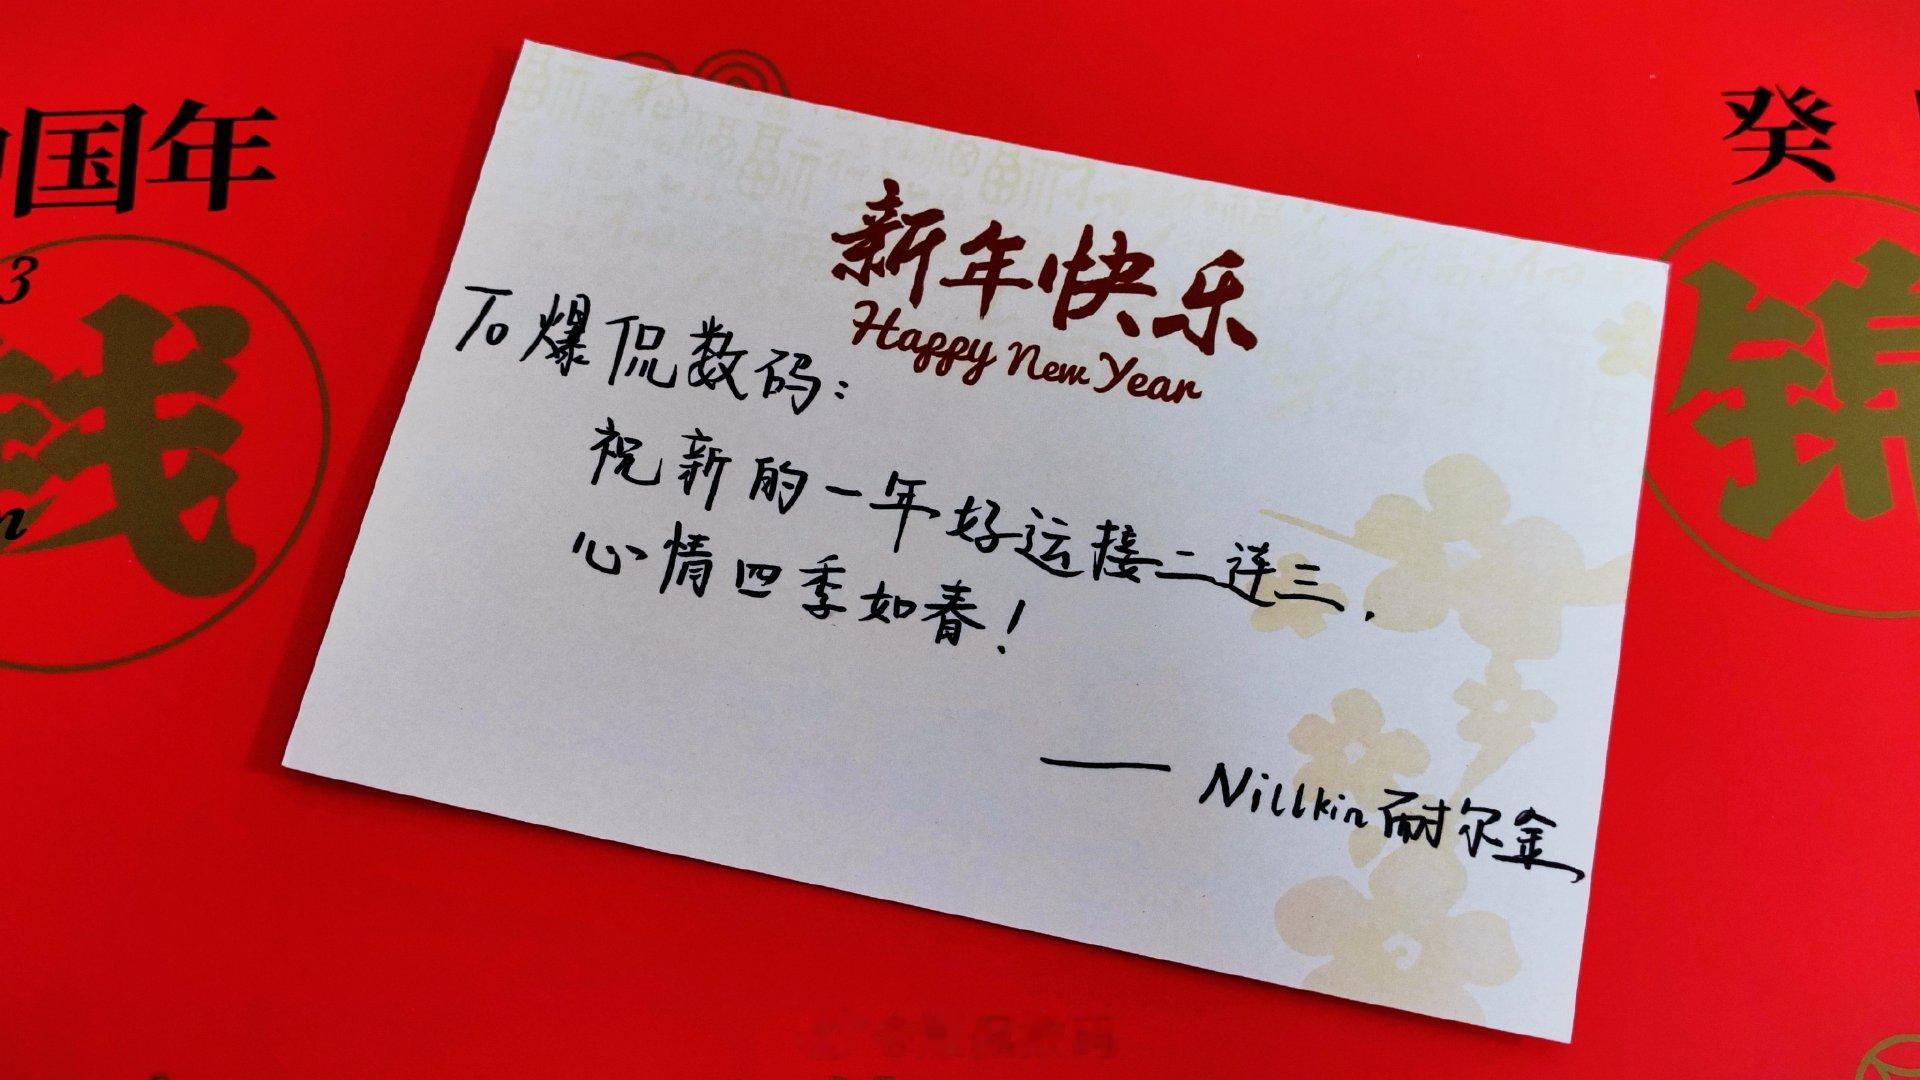 国年
癸
3
钱
锦
新年快乐
Happy New Year
To 爆侃数码:
祝新的一年好运接二连三,
心情四季如春!
—— Nillkin 耐尔金